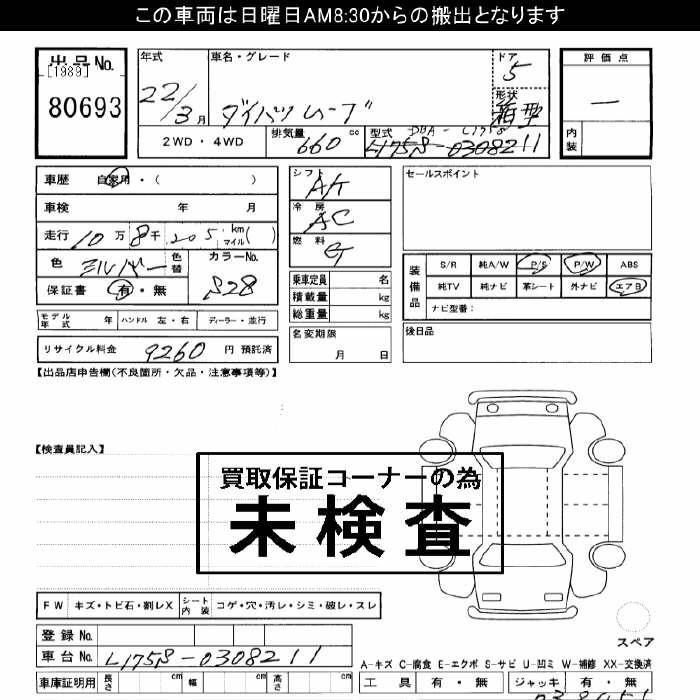 この車両は日曜日AM8:30からの搬出となります
出品No.
[1989]
80693
年式
22/3月
車名・グレード
ダイハツムーブ
ドア
5
形状
箱型
評価点
—
内装
2WD・4WD
排気量 660 cc
型式 DBA-L175S
L175S-0308211
車歴 自家用・( )
車検 年 月
走行 10万8千205 km マイル( )
色 シルバー 色替
カラーNo. S28
保証書 有・無
シフト AT
冷房 AC
燃料 G
乗車定員 名
積載量 kg
総重量 kg
セールスポイント
装備品
S/R 純A/W P/S P/W ABS
純TV 純ナビ 革シート 外ナビ エアB
ナビ型番:
モデル年式 年 ハンドル 左・右 ディーラー・並行
名変期限
月 日
後日品
リサイクル料金 9260 円 預託済
【出品店申告欄(不良箇所・欠品・注意事項等)】
【検査員記入】
買取保証コーナーの為
未検査
FW キズ・トビ石・割レX シート内装 コゲ・穴・汚レ・シミ・破レ・スレ
スペア
登録No.
車台No. L175S-0308211
A-キズ C-腐食 E-エクボ S-サビ U-凹ミ W-補修 XX-交換済
車庫証明用 長さ cm 幅 cm 高さ cm
工具 有・無 ジャッキ 有・無